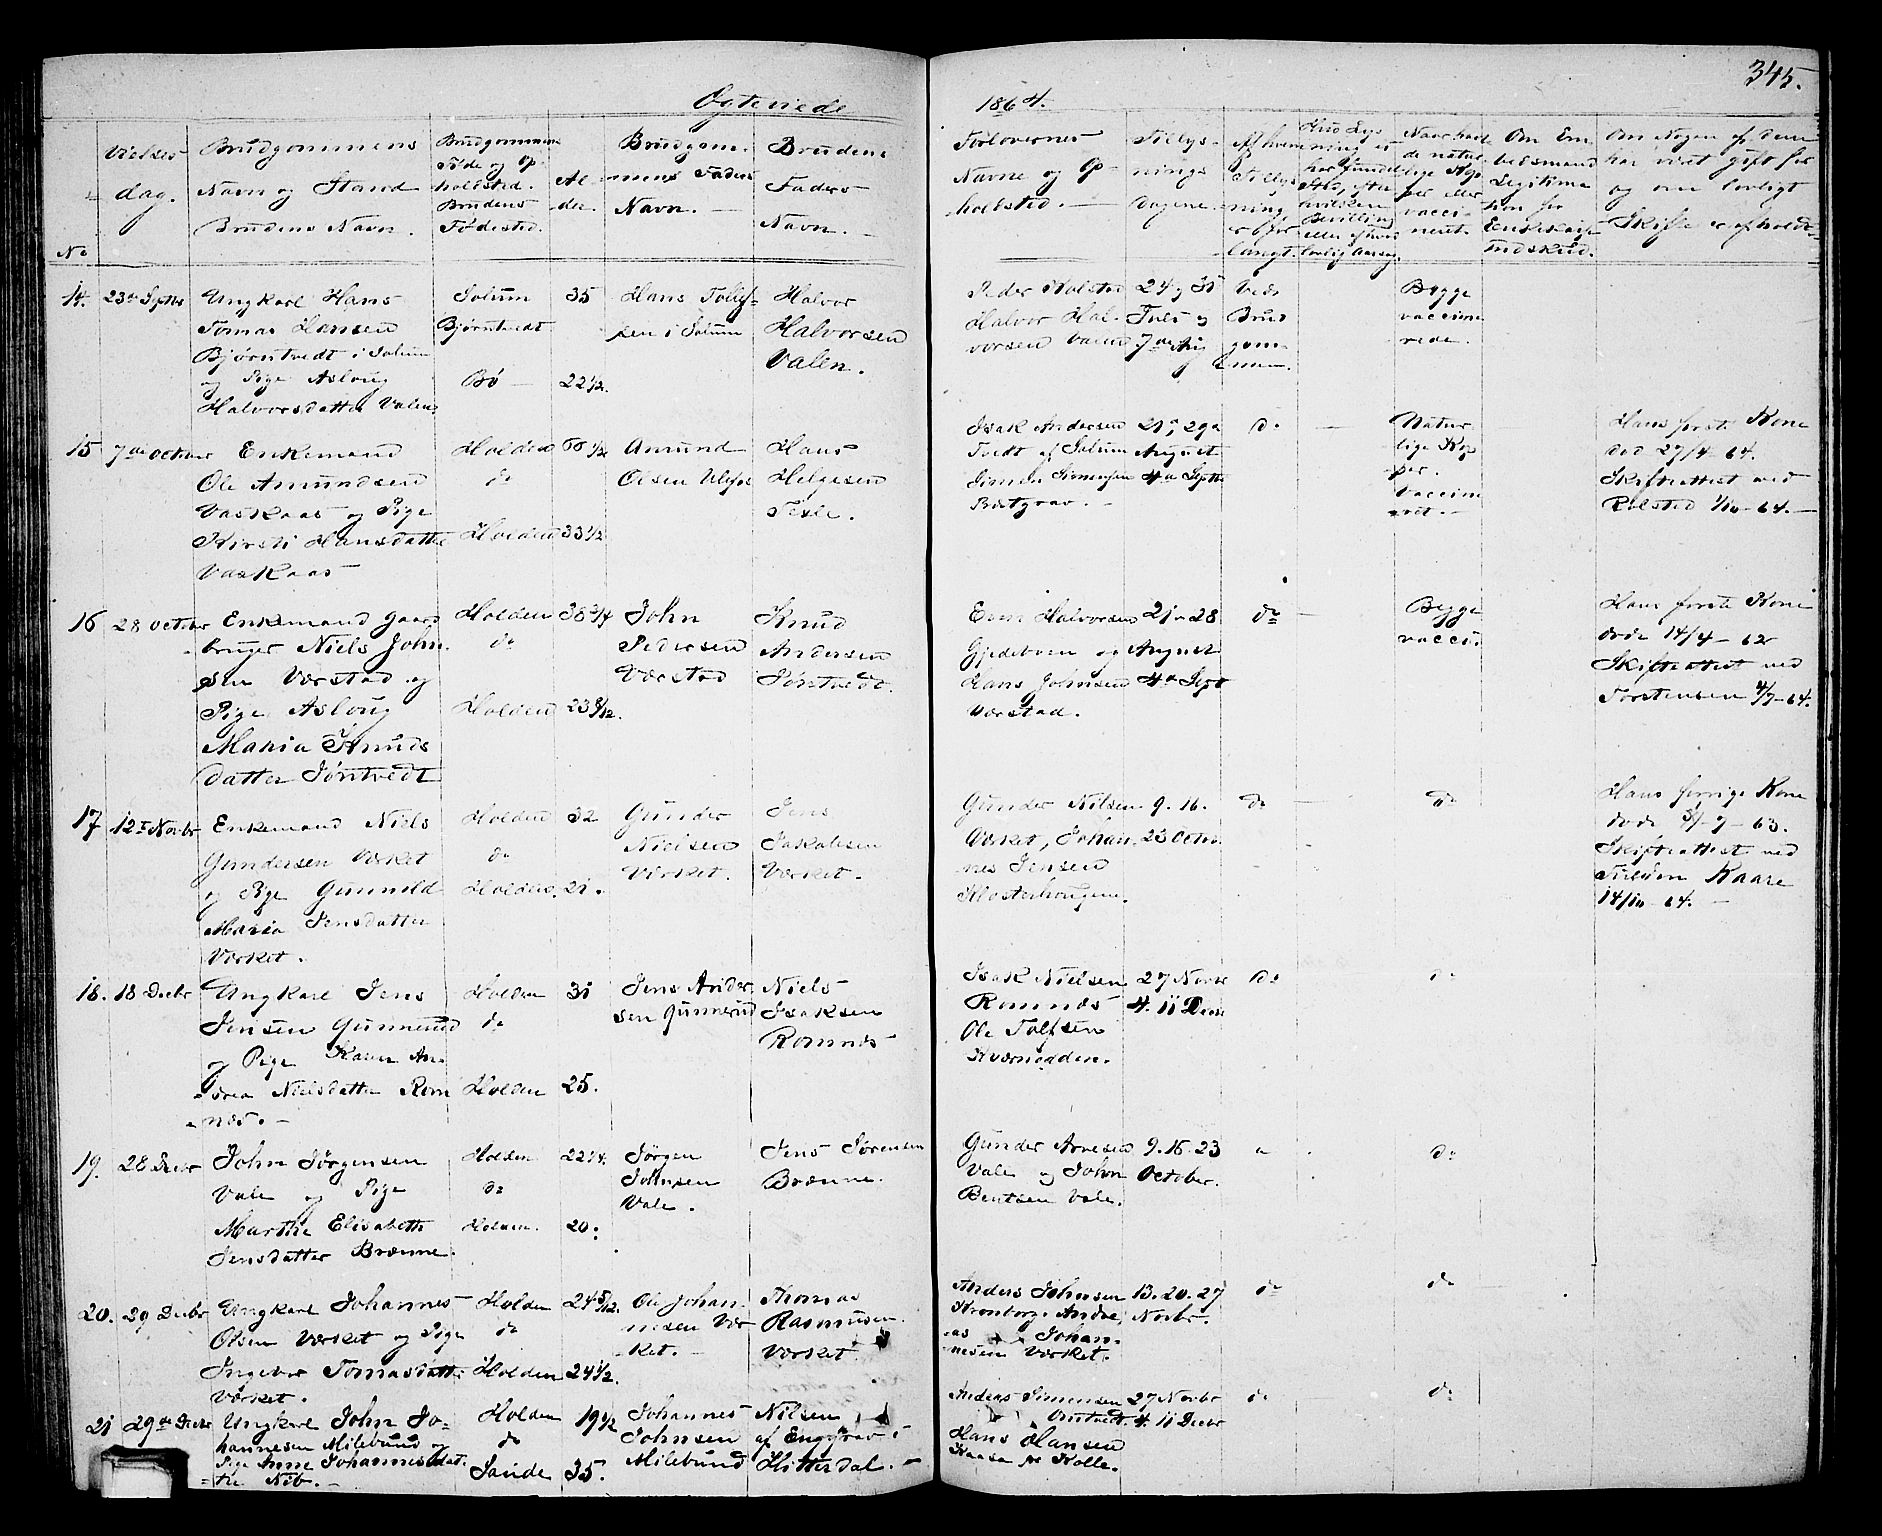 345.
Ægteviede
1864.
No
Vielses
dag.
Brudgommens
Navn og Stand
Brudens Navn.
Brudgommens
Føde og Op
holdsted.
Brudens
Fødested.
Al-
der.
Brudgom-
mens Faders
Navn. —
Brudens
Faders
Navn. —
Forlovernes
Navne og Op-
holdsted. —
Tillys-
nings
dagene.
Af hvem
Tillys
ning
er for
langt.
Om Em
bedsmand
Legitima
tion for
Enkekasse
Indskud.
Om Nogen af dem
har været gift før
og om lovligt
Skifte er afholdt.
14. 23de Septbr
Ungkarl Hans
Tomas Hansen
Bjørntvedt i Solum
og Pige Aslaug
Halvorsdatter Valen
Solum
Bjørntvedt
Bø —
35
22 1/2.
Hans Tollef-
sen i Solum
Halvor
Halvorsen
Valen.
Peder Holstad
Halvor Hal-
vorsen Valen
24 og 31
Juli og
7de Aug
Ved
Brud
gom-
men.
Begge
vaccine
rede.
15 7de October
Enkemand
Ole Amundsen
Vaskaas og Pige
Kirsti Hansdatter
Vaskaas
Holden
do
Holden
33 1/2
Amund
Olsen Ulefos
Hans
Helgesen
Texle.
Isak Andersen
Tvedt af Solum
Simon Simonsen
Bratgrav. —
21, 29a
August
4de Septbr
do —
Natur
lige Kop
per.
Vaccine
ret. —
Hans første Kone
død 27/4-64.
Skifteattest ved
Rolsted 1/10-64. —
16 28 October
Enkemand Gaard
bruger Niels John
sen Værstad og
Pige Asloug
Maria Knuds
datter Jøntvedt
Holden
do
Holden
38 3/4
23 9/12.
John
Pedersen
Værstad
Knud
Andersen
Jøntvedt.
Even Halvorsen
Gjedeboen og
Hans Johnsen
Værstad.
21 28
August
4de Sept
do —
Begge
vacci.
Hans første Kone
døde 14/4-62
Skifteattest ved
Torstensen 4/7-64.
17 12te Novbr
Enkemand Niels
Gundersen Værket
og Pige Gunnild
Maria Jensdatter
Værket.
Holden
do
Holden.
32
21.
Gunder
Nielsen
Værket.
Jens
Jakobsen
Værket.
Gunder Nilsen
Værket, Johan
nes Jensen
Klosterhougen.
9. 16.
23 Octbr.
do —
do
Hans forrige Kone
døde 3/7-63.
Skifteattest ved
Kaare
14/10-64. —
18. 18 Decbr
Ungkarl Jens
Jensen Gunnerud
og Pige Karen An-
drea Nielsdatter Rom
næs. —
Holden
do
Holden
31
25.
Jens Ander
sen Gunnerud
Niels
Isaksen
Romnæs
Isak Nielsen
Romnæs
Ole Tolfsen
Kværnodden.
27 Novbr
4. 11 Decbr
do
do
19. 28 Decbr
John Jørgensen
Vale og Pige
Marthe Elisabeth
Jensdatter Brænne.
Holden
do
Holden.
22 1/4.
20.
Jørgen
Johnsen
Vale.
Jens Sørensen
Brænne.
Gunder Arvesen
Vale og John
Bentsen Vale.
9. 16. 23
October.
do
20. 29 Decbr
Ungkarl Johannes
Olsen Værket og Pige
Ingebor Tomasdatter
Værket.
Holden
do
Holden
24 5/12.
24 1/2.
Ole Johan-
nesen Vær
ket. —
Thomas
Rasmusen.
Værket.
Anders Johnsen
Kronborg. Andre
as Johan-
nesen Værket.
13. 20. 27
Novbr.
do
do
21 29de Decbr
Ungkarl John Jo-
hannesen Milebund og
Pige Anne Johannesdat.
ter Nib. —
Holden
do
Sande
19 1/2
35.
Johannes
Johnsen
Milebund
Nilsen
af Enggrav i
Hitterdal. —
Andreas Simonsen
Omtvedt.
Hans Hansen
Kaasa Kolle.
27 Novbr
4. 11 Decbr
do
do